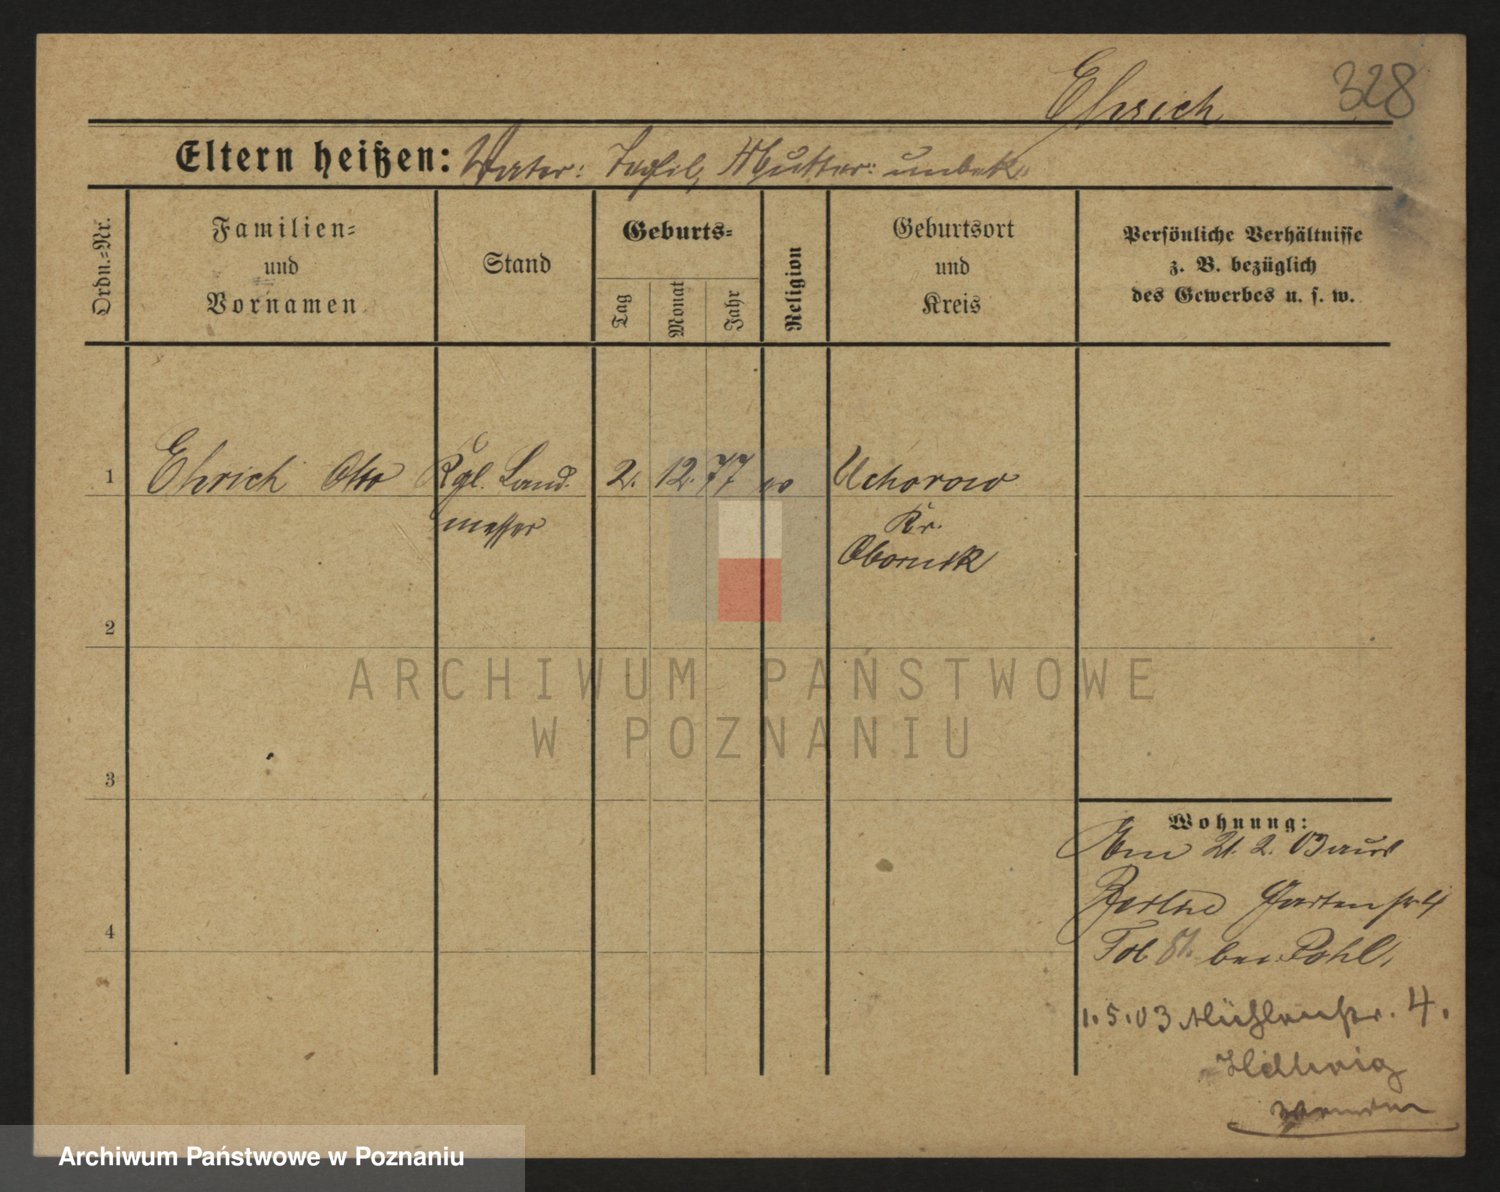 Ehrich 328
Eltern heißen: Vater: Mutter: unbek.
Ordn.-Nr.
Familien-
und
Vornamen
Stand
Geburts-
Tag
Monat
Jahr
Religion
Geburtsort
und
Kreis
Persönliche Verhältnisse
z. B. bezüglich
des Gewerbes u. s. w.
1 Ehrich Otto Kgl. Land- 2. 12. 77 ev Uchorowo
messer Kr.
Obornik
2
3
4
Wohnung:
Am 21. 2. 03 aus
Berlin Gartenstr 4
bei Pohl.
1.5.03 Mühlenstr. 4.
Hellwig
ARCHIWUM PAŃSTWOWE
W POZNANIU
Archiwum Państwowe w Poznaniu